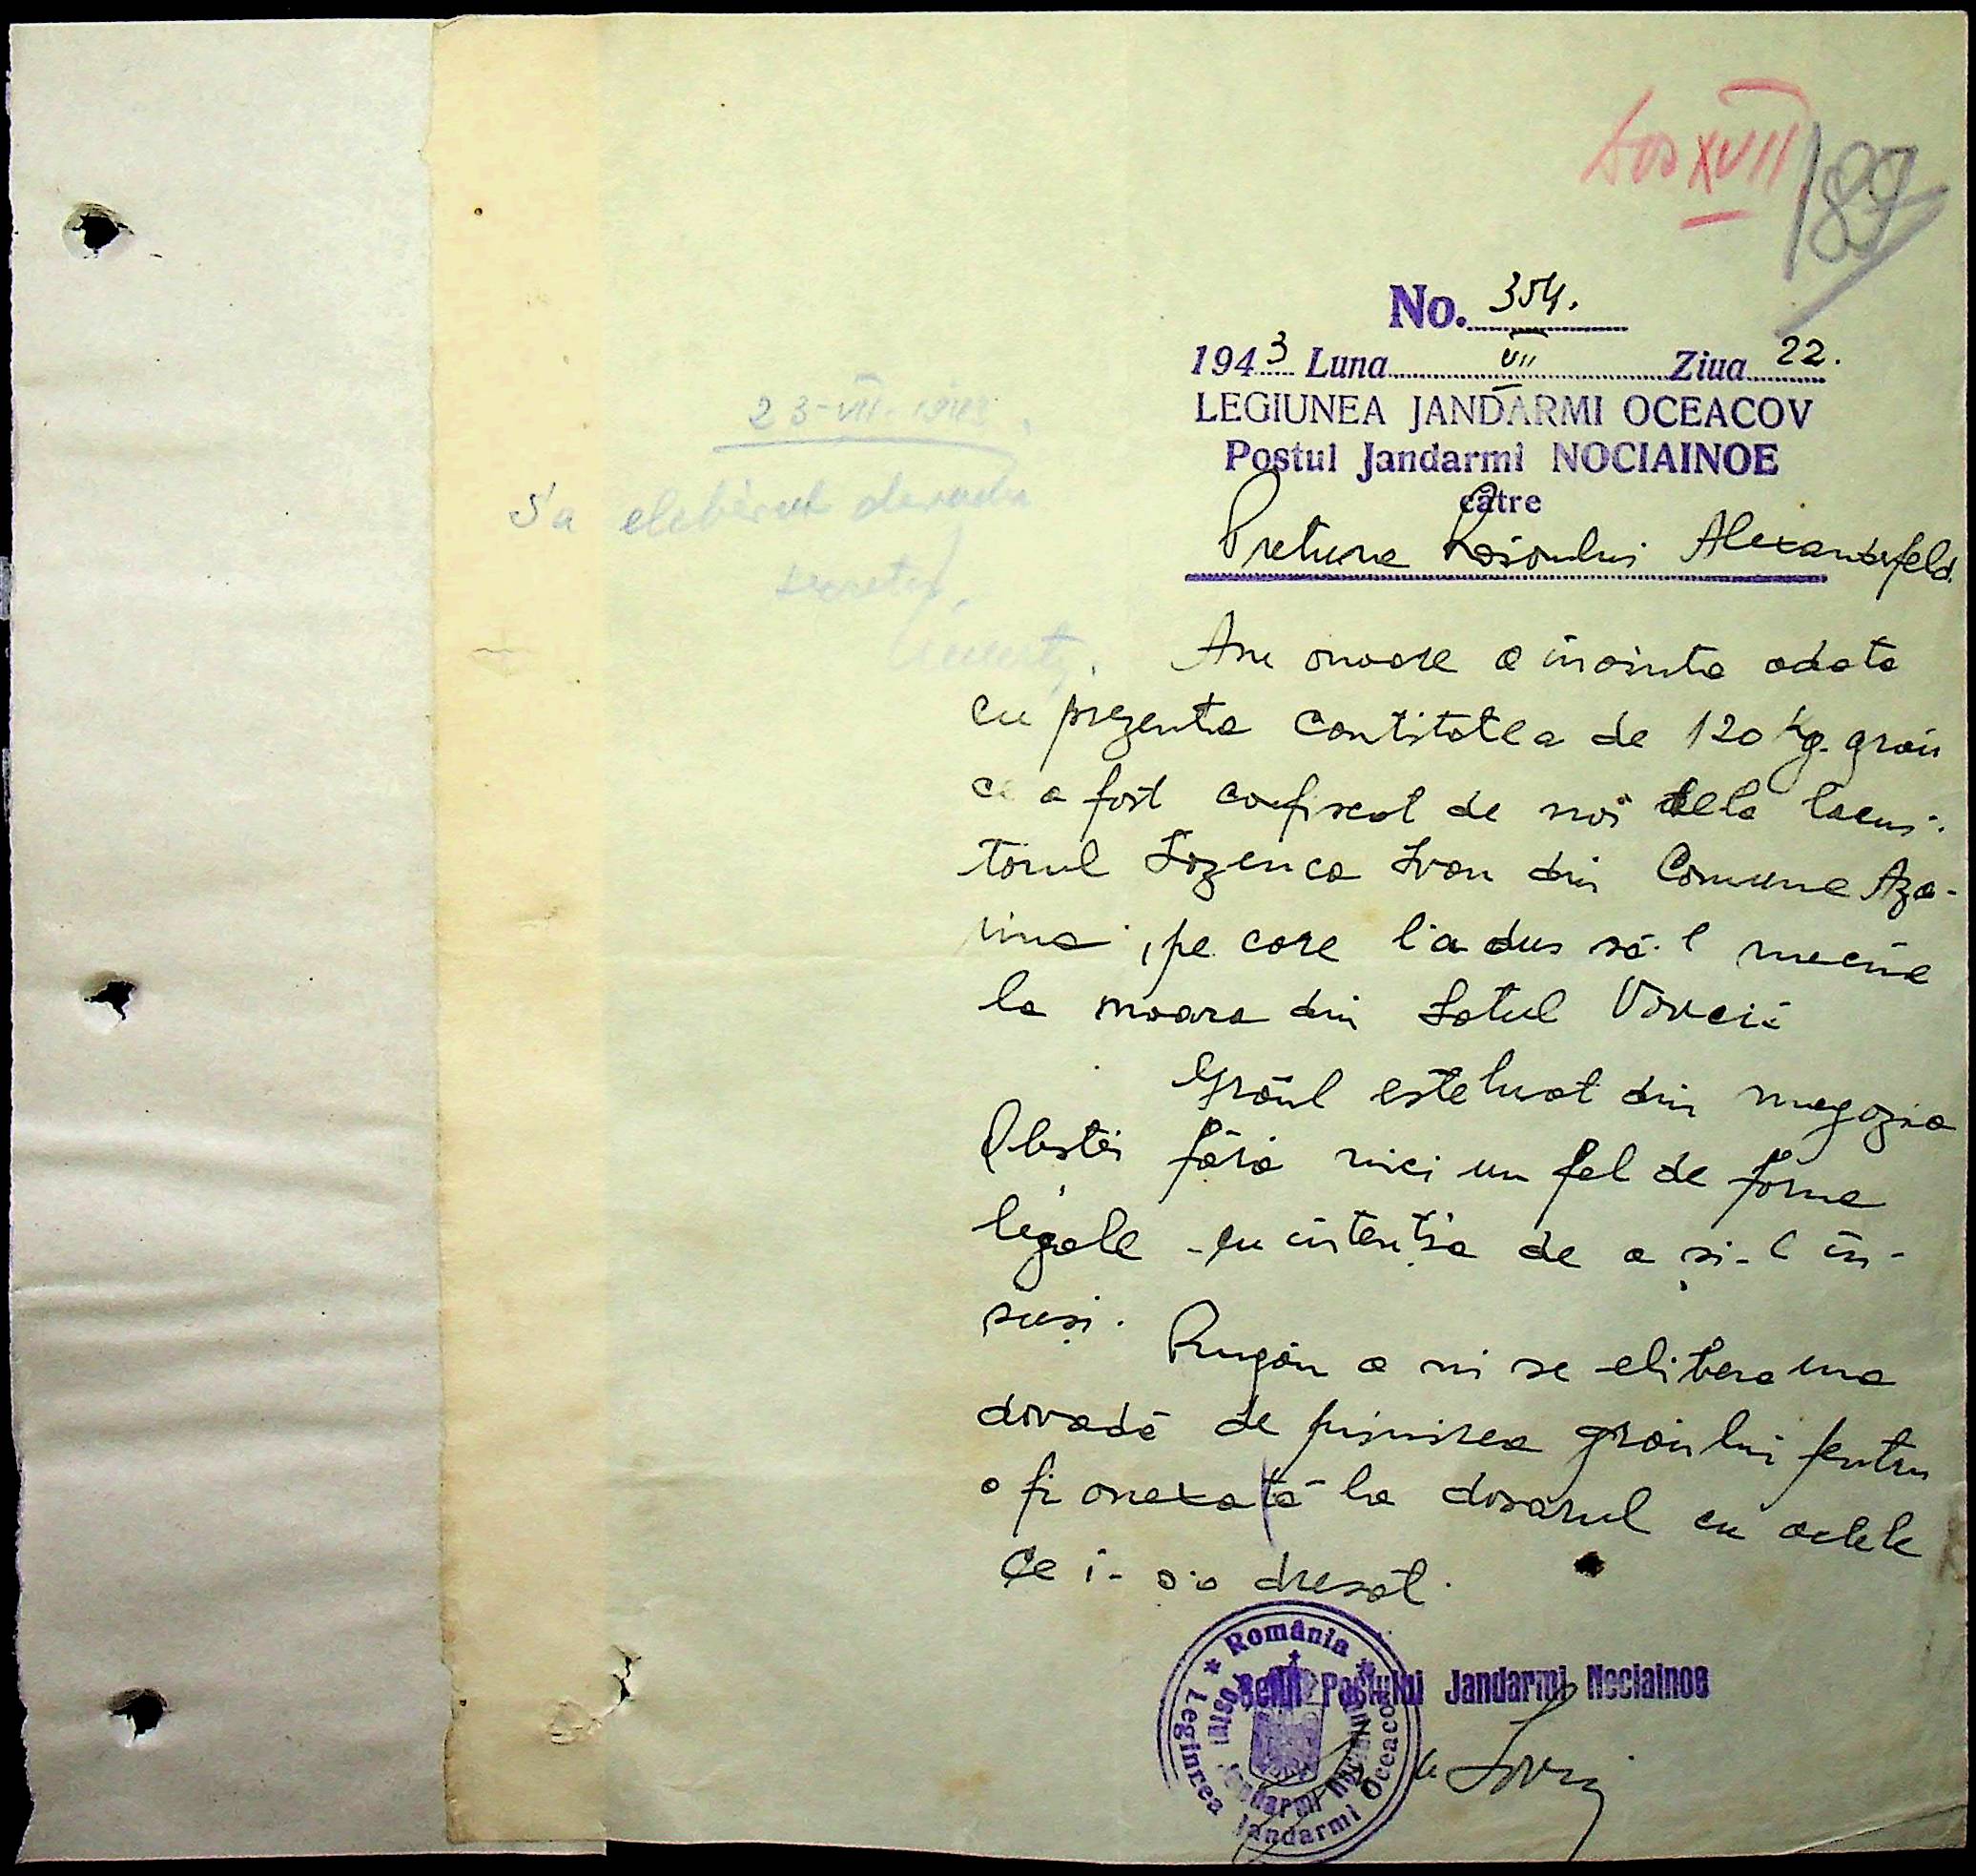 Dos XVII
187
No. 354.
1943 Luna VII Ziua 22.
LEGIUNEA JANDARMI OCEACOV
Postul Jandarmi NOCIAINOE
către
Pretura Raionului Alexanderfeld.
23-VII-1943.
S'a eliberat dovada
Am onoare a înainta odata
cu prezenta Cantitatea de 120 Kg. grâu
ce a fost confiscat de noi dela locui-
torul Lozenco Ivan din Comuna
, pe care l'a dus să-l macine
la moara din Satul
Grâul este luat din magazia
Obștei fără nici un fel de forme
legale cu intenția de a și-l în-
suși.
Rugăm a ni se elibera una
dovadă de primirea grâului pentru
a fi anexată la dosarul cu actele
Ce i-s'a dresat.
Șeful Postului Jandarmi Nociainoe
România
Legiunea Jandarmi Oceacov
Postul Jandarmi Nociainoe